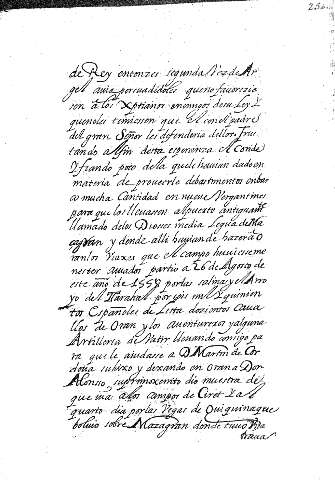 de Rey entonzes segunda Vez de Ar
gel auia persuadidoles que no fauorezie
sen a los Xptianos enemigos de su Ley y
que no les temiesen que El con el padre
del gran Señor les defenderia dellos frus
tando al fin desta esperanza el Conde
y fiando poco della que le hauian dado en
materia de proueerse de bastimentos enbar
co mucha Cantidad en nueue Vergantines
para que los lleuasen al puerto antiguamte
llamado de los Dioses media Legua de Ma
zagran y donde alli hauian de hazer o
tros Viaxes que el campo huuiese me
nester auiados partio a 26 de Agosto de
este año de 1558 por las salinas y el Arro
yo del Tarahal por seis mil y quinien
tos Españoles de Lista dozientos Caua
llos de Oran y los auentureros y alguna
Artilleria de Vatir lleuando consigo pa
ra que le aiudase a D. Martin de Cor
doua su hixo y dexando en Oran a Don
Alonso, su primoxenito dio muestra de
que iua a los campos de Ciret y a
quarto dia por las Vegas de Quiquinaque
boluio sobre Mazagran donde tuuo